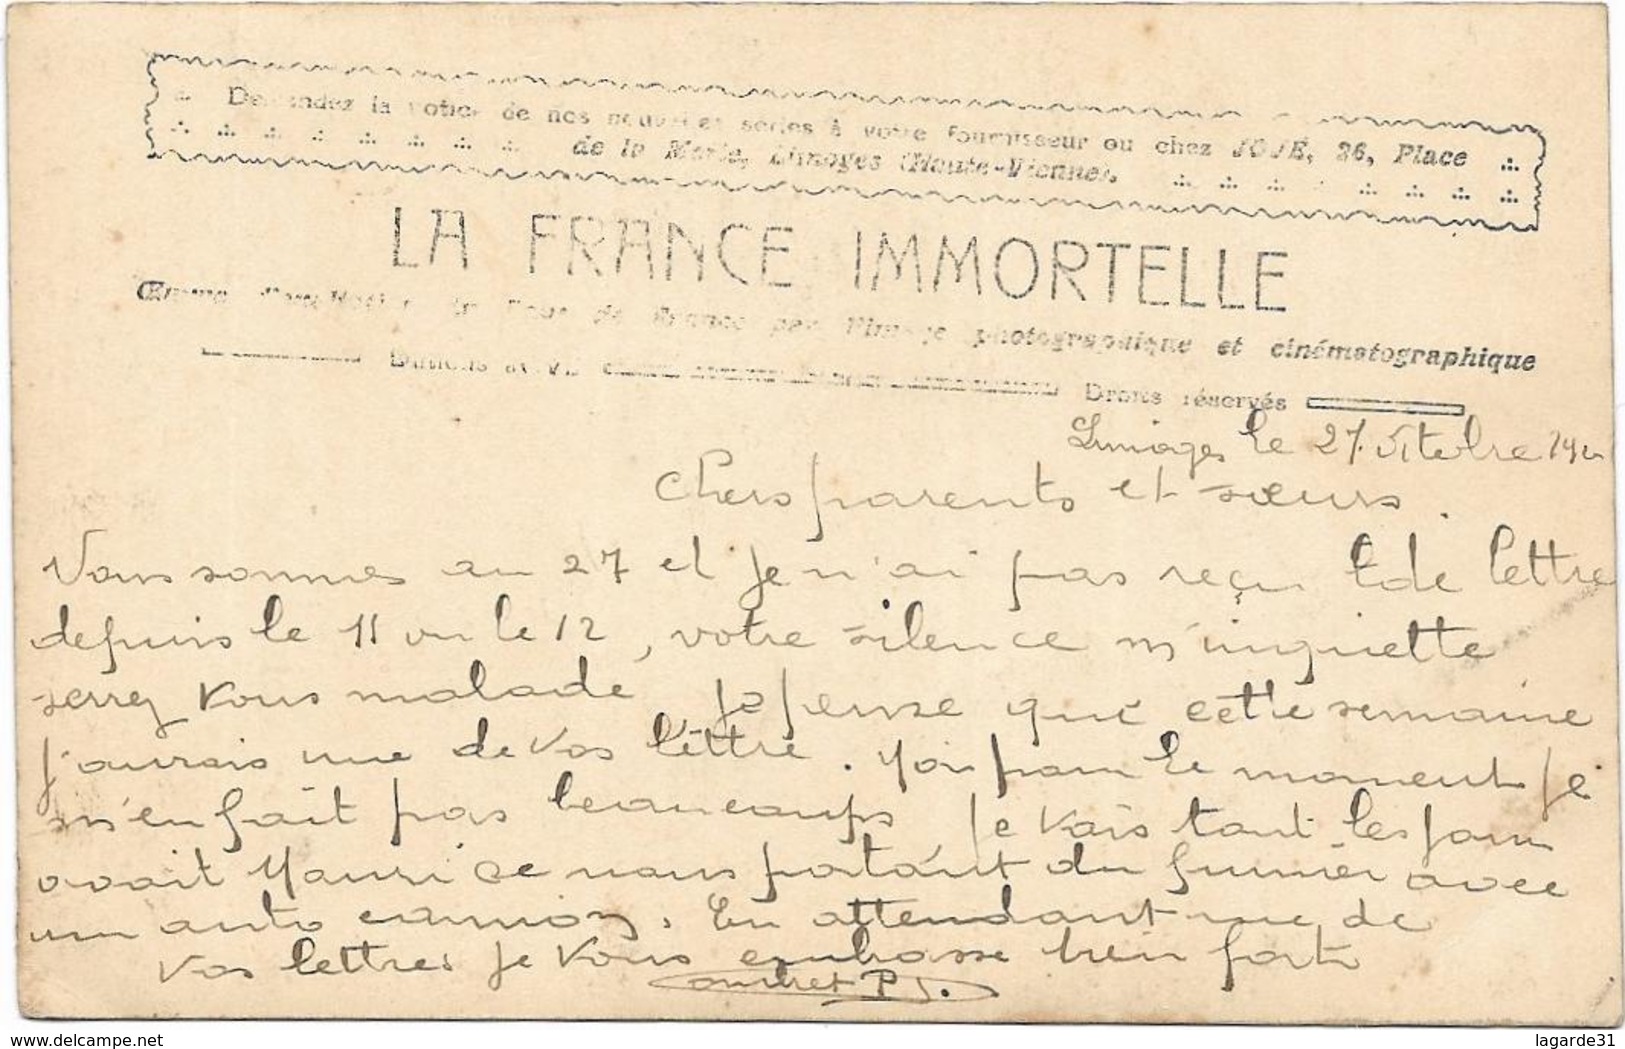 Demandez la notice de nos nouvelles séries à votre fournisseur ou chez JOJE, 26, Place
de la Marie, Limoges (Haute-Vienne).
LA FRANCE IMMORTELLE
Tour de France par l'image photographique et cinématographique
Editions Droits réservés
Limoges le 27
chers parents et sœurs.
Vous sommes au 27 et je n'ai pas reçu de lettre
depuis le 11 ou le 12, votre silence m'inquiette
serrez vous malade je pense que cette semaine
j'aurais une de vos lèttre. Moi pour le moment je
m'en fait pas beaucoups je vais tout les jours
avait Maurice nous portant du fumier avec
un auto camion. En attendant une de
vos lettres je vous embrasse bien fort
delcampe.net
lagarde31